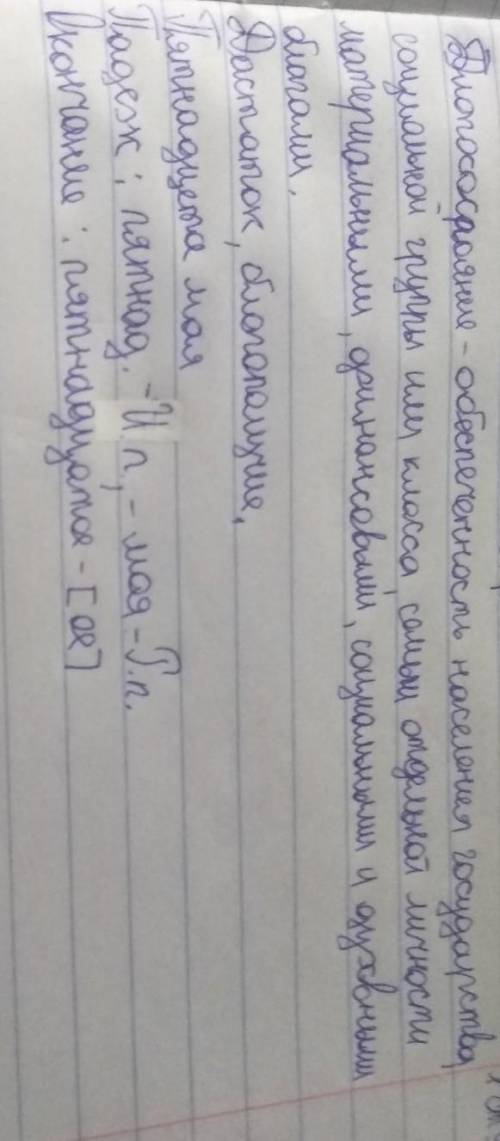 Благосостояние - обеспеченность населения государства,
социальной группы или класса, семьи отдельной личности
материальными, финансовыми, социальными и духовными
благами.
Достаток, благополучие.
Пятнадцатое мая
Падеж: пятнад. - И.п, - мая - Р.п.
Окончание: пятнадцатое - [ое]